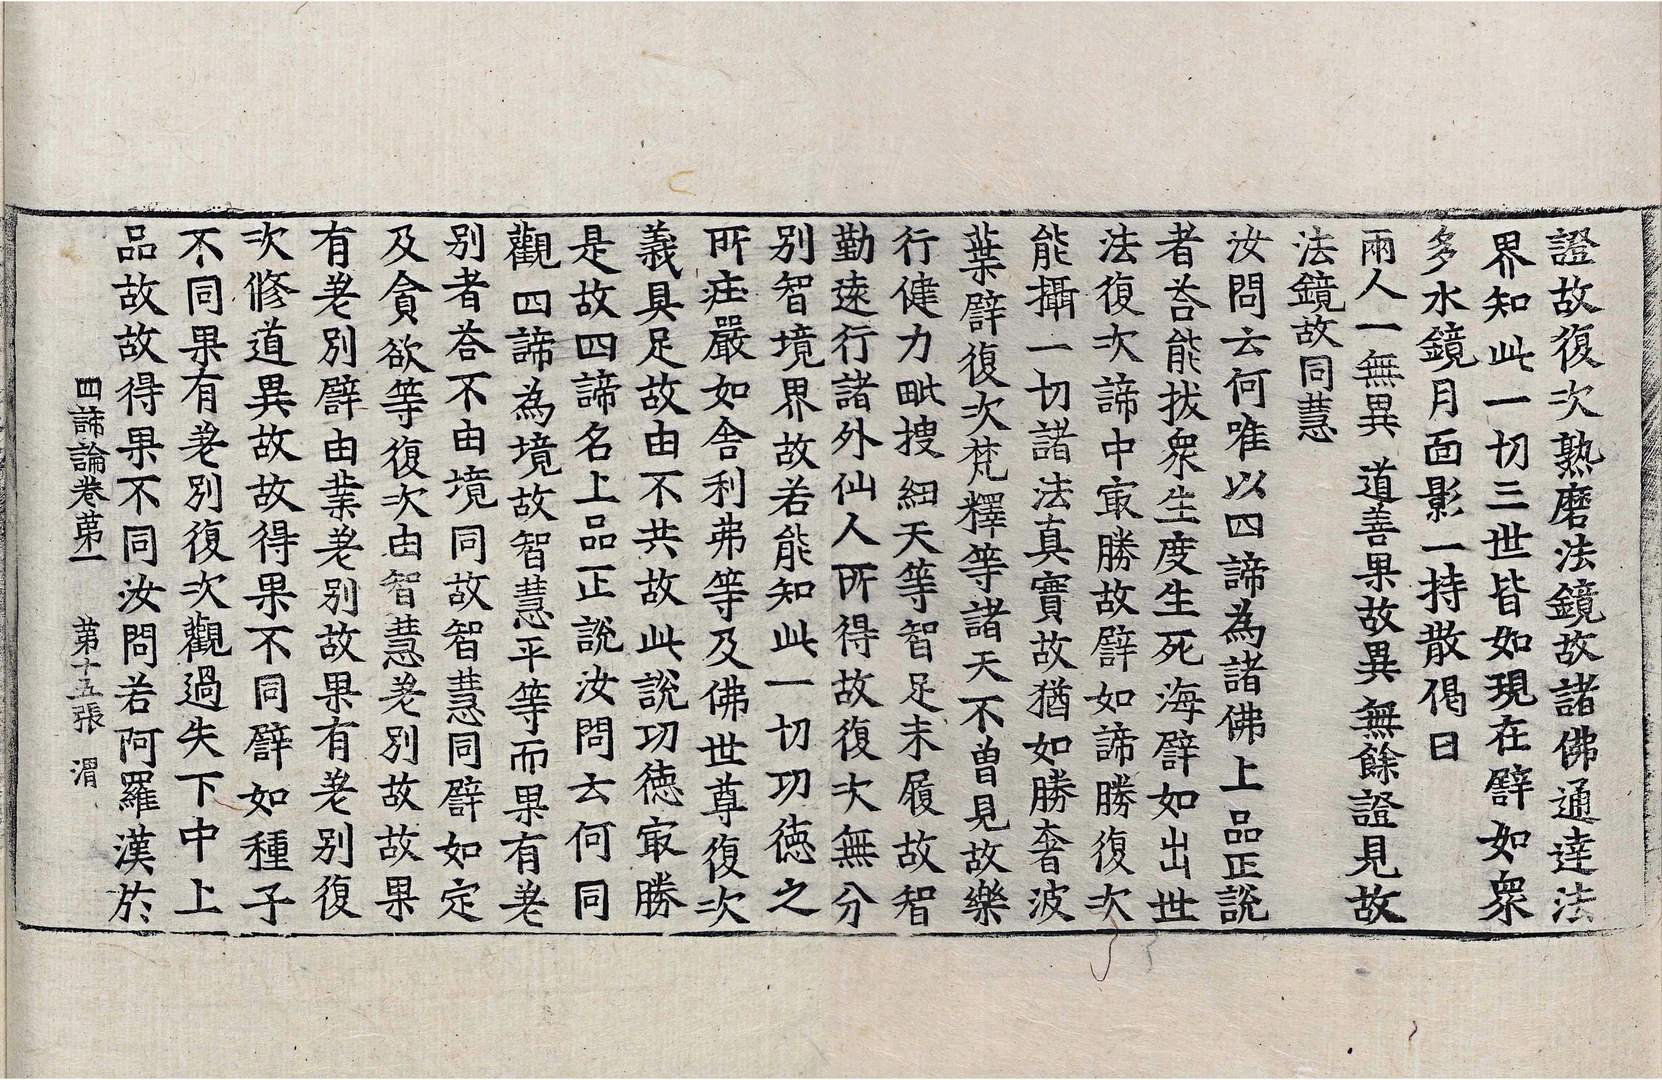 證故復次熟磨法鏡故諸佛通達法
界知此一切三世皆如現在譬如衆
多水鏡月面影一持散偈曰
兩人一無異 道善果故異 無餘證見故
法鏡故同慧
汝問云何唯以四諦為諸佛上品正說
者荅能拔衆生度生死海譬如出世
法復次諦中㝡勝故譬如諦勝復次
能攝一切諸法真實故猶如勝奢波
葉譬復次梵釋等諸天不曾見故樂
行健力毗搜紐天等智足未履故智
勤遠行諸外仙人所得故復次無分
別智境界故若能知此一切功徳之
所㽵嚴如舍利弗等及佛世尊復次
義具足故由不共故此說功徳㝡勝
是故四諦名上品正說汝問云何同
觀四諦為境故智慧平等而果有差
別者荅不由境同故智慧同譬如定
及貪欲等復次由智慧差別故故果
有差別譬由業差別故果有差別復
次修道異故故得果不同譬如種子
不同果有差別復次觀過失下中上
品故故得果不同汝問若阿羅漢於
四諦論卷第一 第十五張 渭